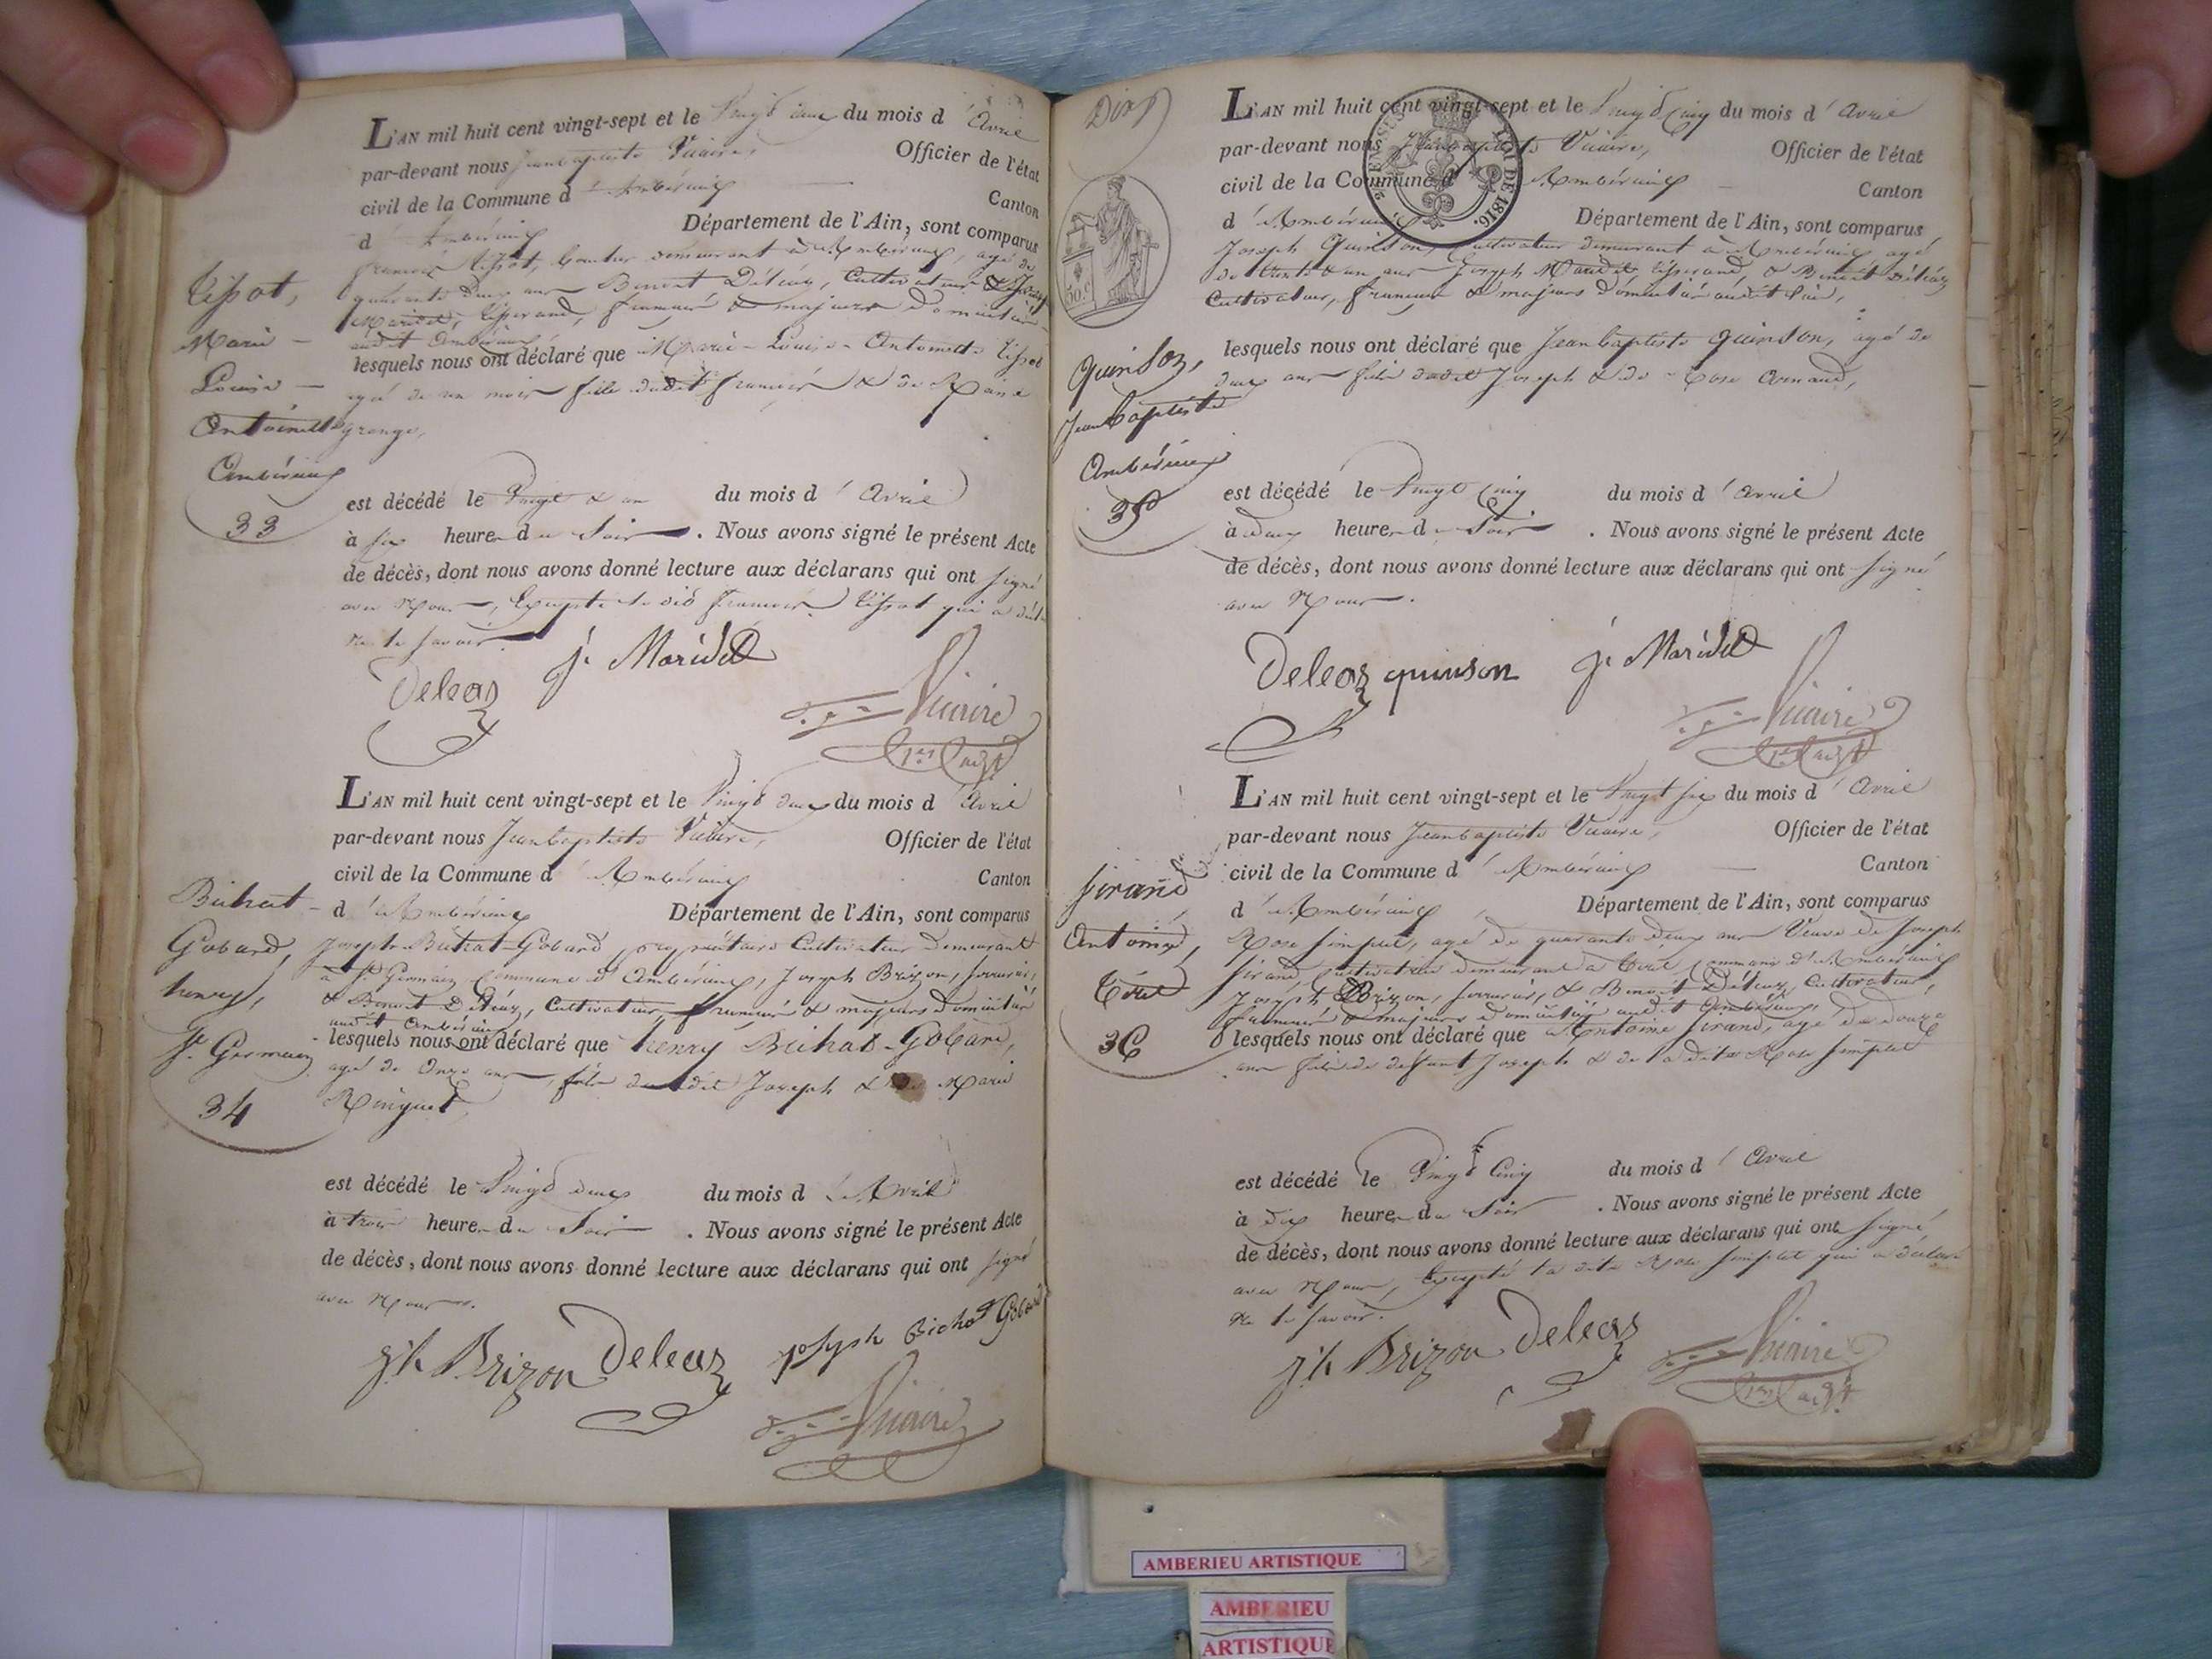 L'AN mil huit cent vingt-sept et le Vingt deux du mois d'Avril
par-devant nous Jean baptiste Vicaire, Officier de l'état
civil de la Commune d'Ambérieux Canton
d'Ambérieux Département de l'Ain, sont comparus
françois Tissot, demeurant à Ambérieux, agé de
quarante deux ans Benoit Déléaz, Cultivateur & Joseph
Maridet, Tisserand, français & majeurs Domiciliés
audit Ambérieux
lesquels nous ont déclaré que Marie-Louise-Antoinette Tissot
agé de un mois fille dudit françois & de
grange,
Tissot,
Marie -
Louise -
Antoinette
Ambérieux
33
est décédé le Vingt & un du mois d'Avril
à six heures du Soir. Nous avons signé le présent Acte
de décès, dont nous avons donné lecture aux déclarans qui ont signé
avec Nous, Excepté le dit françois Tissot qui a déclaré
ne le savoir.
Deleaz j. Maridet
Vicaire
L'AN mil huit cent vingt-sept et le Vingt deux du mois d'Avril
par-devant nous Jean baptiste Vicaire, Officier de l'état
civil de la Commune d'Ambérieux Canton
d'Ambérieux Département de l'Ain, sont comparus
Joseph Bichat-Gobard, propriétaire Cultivateur Demeurant
à St Germain Commune d'Ambérieux, Joseph Brizon, serrurier,
& Benoit Déléaz, Cultivateur français & majeurs domiciliés
audit Ambérieux
lesquels nous ont déclaré que henry Bichat-Gobard,
agé de Onze ans, fils dudit Joseph & de Marie
Ringuet,
Bichat -
Gobard,
henry,
St Germain
34
est décédé le Vingt deux du mois d'Avril
à trois heures du Soir. Nous avons signé le présent Acte
de décès, dont nous avons donné lecture aux déclarans qui ont signé
avec Nous.
jh Brizon Deleaz joseph Bichat Gobard
Vicaire
L'AN mil huit cent vingt-sept et le Vingt Cinq du mois d'Avril
par-devant nous Jean baptiste Vicaire, Officier de l'état
civil de la Commune d'Ambérieux Canton
d'Ambérieux Département de l'Ain, sont comparus
Joseph Quinson, Cultivateur demeurant à Ambérieux, agé
de trente & un ans Joseph Maridet Tisserand, & Benoit Déléaz
Cultivateur, français & majeurs domiciliés audit lieu,
lesquels nous ont déclaré que Jean baptiste quinson, agé de
deux ans fils dudit Joseph & de Rose Arnaud,
LOI DE 1816.
50.c
quinson,
Jean baptiste
Ambérieux
35
est décédé le Vingt Cinq du mois d'Avril
à deux heures du Soir. Nous avons signé le présent Acte
de décès, dont nous avons donné lecture aux déclarans qui ont signé
avec Nous.
Deleaz quinson j. Maridet
Vicaire
L'AN mil huit cent vingt-sept et le Vingt six du mois d'Avril
par-devant nous Jean baptiste Vicaire, Officier de l'état
civil de la Commune d'Ambérieux Canton
d'Ambérieux, Département de l'Ain, sont comparus
Rose simplet, agé de quarante deux ans Veuve de Joseph
sirand, Cultivatrice demeurant à Tiret Commune d'Ambérieux
Joseph Brizon, serrurier, & Benoit Déléaz, Cultivateur,
français & majeurs domiciliés audit Ambérieux,
lesquels nous ont déclaré que Antoine sirand, agé de douze
ans fils de défunt Joseph & de ladite Rose simplet
sirand
Antoine,
Tiret
36
est décédé le Vingt Cinq du mois d'Avril
à dix heures du Soir. Nous avons signé le présent Acte
de décès, dont nous avons donné lecture aux déclarans qui ont signé
avec Nous, Excepté la dite Rose simplet qui a déclaré
ne le savoir.
jh Brizon Deleaz
Vicaire
AMBERIEU ARTISTIQUE
AMBERIEU
ARTISTIQUE